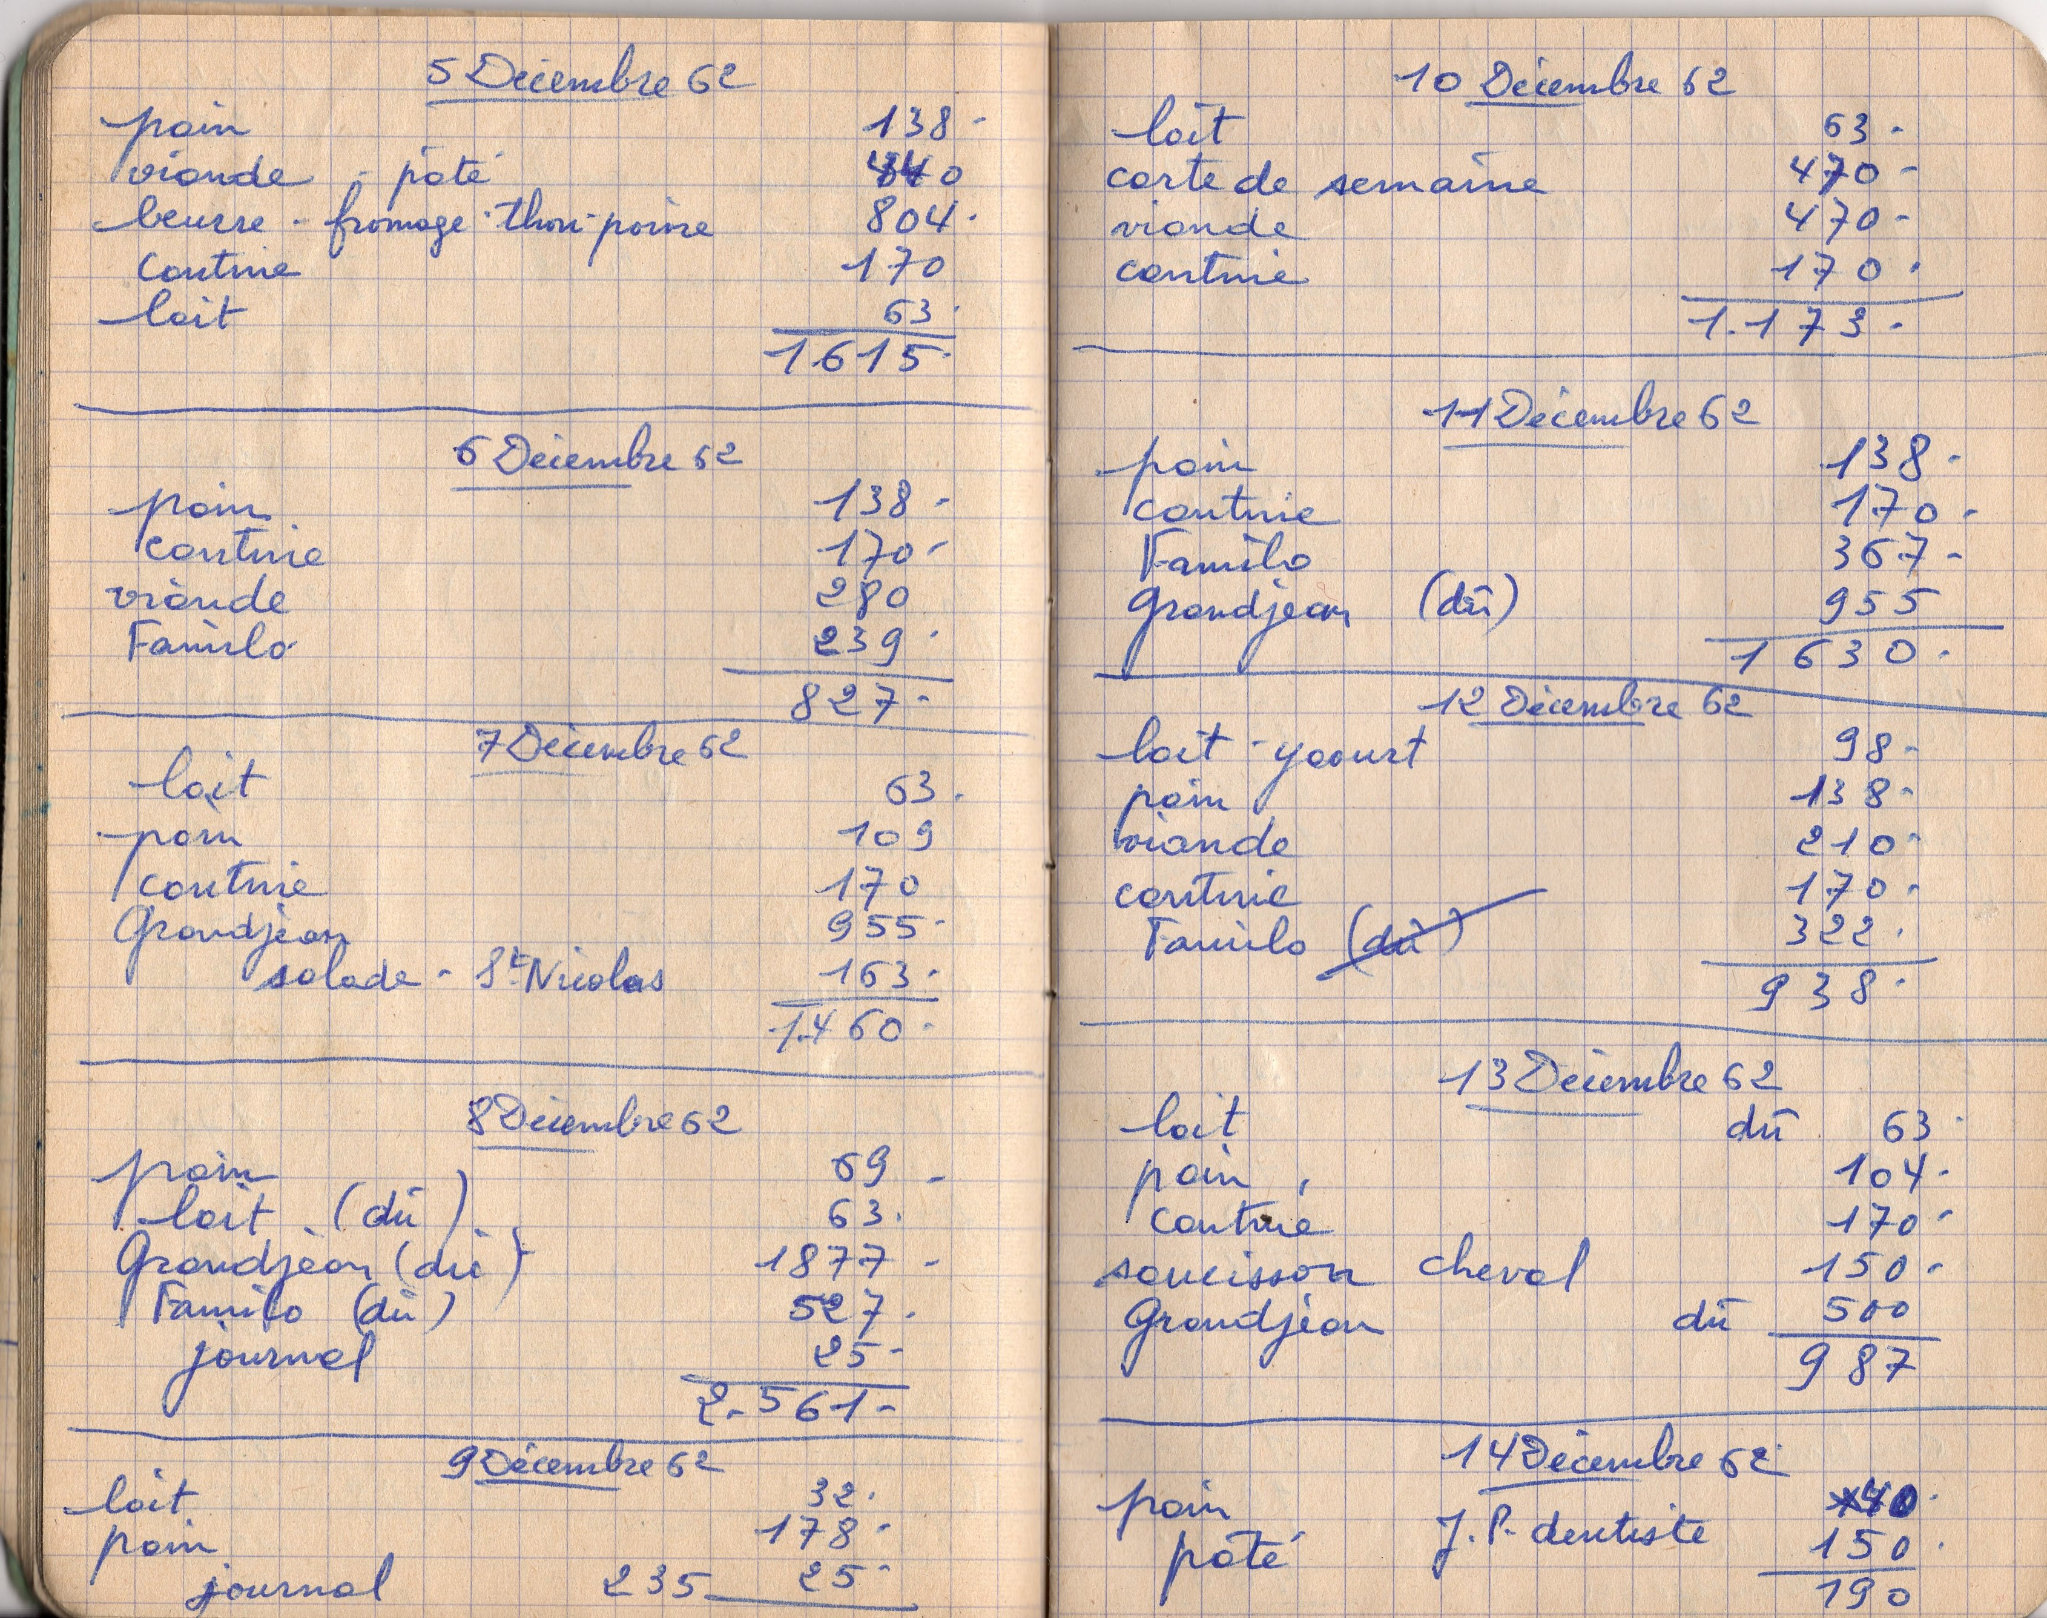 5 Décembre 62
pain 138.
viande - pâté 440
beurre - fromage - thon - poire 804.
cantine 170
lait 63.
1615.
6 Décembre 62
pain 138.
cantine 170.
viande 280
Familo 239.
827.
7 Décembre 62
lait 63.
pain 109
cantine 170
Grandjean 955.
salade - St Nicolas 163.
1.460.
8 Décembre 62
pain 69.
lait (dû) 63.
Grandjean (dû) 1877.
Familo (dû) 527.
journal 25.
2.561.
9 Décembre 62
lait 32.
pain 178.
journal 235 25.
10 Décembre 62
lait 63.
carte de semaine 470.
viande 470.
cantine 170.
1.173.
11 Décembre 62
pain 138.
cantine 170.
Familo 367.
Grandjean (dû) 955
1630.
12 Décembre 62
lait - yaourt 98.
pain 138.
viande 210.
cantine 170.
Familo (dû) 322.
938.
13 Décembre 62
lait dû 63.
pain 104.
cantine 170.
saucisson cheval 150.
Grandjean dû 500
987
14 Décembre 62
pain 40.
pâté J.P. dentiste 150.
190